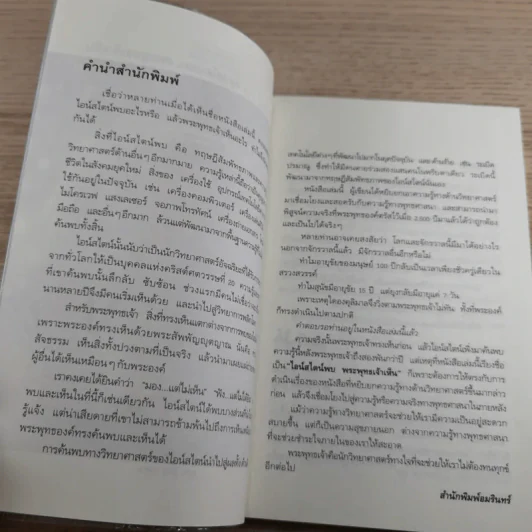 คำนำสำนักพิมพ์
เชื่อว่าหลายท่านเมื่อได้เห็นชื่อหนังสือเล่มนี้
ไอน์สไตน์พบอะไรหรือ แล้วพระพุทธเจ้าเห็นอะไร
กันได้
สิ่งที่ไอน์สไตน์พบ คือ ทฤษฎีสัมพัทธภาพ
วิทยาศาสตร์ด้านอื่นๆ อีกมากมาย ความรู้เหล่านี้
ชีวิตในสังคมยุคใหม่ สิ่งของ เครื่องใช้ อุปกรณ์
ใช้กันอยู่ในปัจจุบัน เช่น เครื่องคอมพิวเตอร์ เครื่อง
ไมโครเวฟ แสงเลเซอร์ จอภาพโทรทัศน์ เครื่องถ่ายเอกสาร
มือถือ และอื่นๆ อีกมาก ล้วนแต่พัฒนามาจากพื้นฐานความรู้
ค้นพบทั้งสิ้น
ไอน์สไตน์นั้นนับว่าเป็นนักวิทยาศาสตร์อัจฉริยะที่ได้รับ
จากทั่วโลกให้เป็นบุคคลแห่งคริสต์ศตวรรษที่ 20 ความรู้
ที่เขาค้นพบนั้นลึกลับ ซับซ้อน ช่วงแรกมีคนไม่เชื่อ
นานหลายปีจึงมีคนเริ่มเห็นด้วย และนำไปสู่วิทยาการ
สำหรับพระพุทธเจ้า สิ่งที่ทรงเห็นแตกต่างจากการพบ
เพราะพระองค์ทรงเห็นด้วยพระสัพพัญญุตญาณ นั่นคือ
สัจธรรม เห็นสิ่งทั้งปวงตามที่เป็นจริง แล้วนำมาเผยแผ่
ผู้อื่นได้เห็นเหมือนๆ กับพระองค์
เราคงเคยได้ยินคำว่า "มอง...แต่ไม่เห็น" "ฟัง...แต่ไม่ได้ยิน"
พบและเห็นในที่นี้ก็เช่นเดียวกัน ไอน์สไตน์ได้พบบางส่วน
รู้แจ้ง แต่น่าเสียดายที่เขาไม่สามารถข้ามพ้นไปถึงการเห็น
พระพุทธองค์ทรงค้นพบและเห็นได้
การค้นพบทางวิทยาศาสตร์ของไอน์สไตน์นำไปสู่
เทคโนโลยีต่างๆ ที่พัฒนาไปมากในยุคปัจจุบัน และด้านร้าย เช่น ระเบิด
ปรมาณู ซึ่งทำให้มีคนตายร่วมสองแสนคนในครั้งเดียว ระเบิดนี้
พัฒนามาจากทฤษฎีสัมพัทธภาพของไอน์สไตน์นั่นเอง
หนังสือเล่มนี้ ผู้เขียนได้หยิบยกความรู้ทางด้านวิทยาศาสตร์
มาเชื่อมโยงและสอดรับกับความรู้ทางพุทธศาสนา และสามารถนำมา
พิสูจน์ความจริงที่พระพุทธองค์ตรัสไว้เมื่อ 2,500 ปีมาแล้วได้ว่าถูกต้อง
และเป็นไปได้จริงๆ
หลายท่านอาจเคยสงสัยว่า โลกและจักรวาลนี้มีมาได้อย่างไร
นอกจากจักรวาลนี้แล้ว มีจักรวาลอื่นอีกหรือไม่
ทำไมอายุขัยของมนุษย์ 100 ปีกลับเป็นเวลาเพียงชั่วครู่เดียวใน
สรวงสวรรค์
ทำไมสุนัขมีอายุขัย 15 ปี แต่ยุงกลับมีอายุแค่ 7 วัน
เพราะเหตุใดองคุลีมาลจึงวิ่งตามพระพุทธเจ้าไม่ทัน ทั้งที่พระองค์
ก็ทรงดำเนินไปตามปกติ
คำตอบรอท่านอยู่ในหนังสือเล่มนี้แล้ว
ความจริงนั้นพระพุทธเจ้าทรงเห็นก่อน แล้วไอน์สไตน์จึงมาค้นพบ
ความรู้นี้หลังพระพุทธเจ้าถึงสองพันกว่าปี แต่เหตุที่หนังสือเล่มนี้เรียงชื่อ
เป็น "ไอน์สไตน์พบ พระพุทธเจ้าเห็น" ก็เพราะต้องการให้ตรงกับการ
ดำเนินเรื่องของหนังสือที่หยิบยกความรู้ทางด้านวิทยาศาสตร์ขึ้นมากล่าว
ก่อน แล้วจึงเชื่อมโยงไปสู่ความรู้หรือความจริงทางพุทธศาสนาในภายหลัง
แม้ว่าความรู้ทางวิทยาศาสตร์จะช่วยให้เรามีความเป็นอยู่สะดวก
สบายขึ้น แต่ก็เป็นความสุขภายนอก ต่างจากความรู้ทางพุทธศาสนา
ที่จะช่วยชำระใจภายในของเราให้สะอาด
พระพุทธเจ้าคือนักวิทยาศาสตร์ทางใจที่จะช่วยให้เราไม่ต้องทนทุกข์
อีกต่อไป
สำนักพิมพ์อมรินทร์